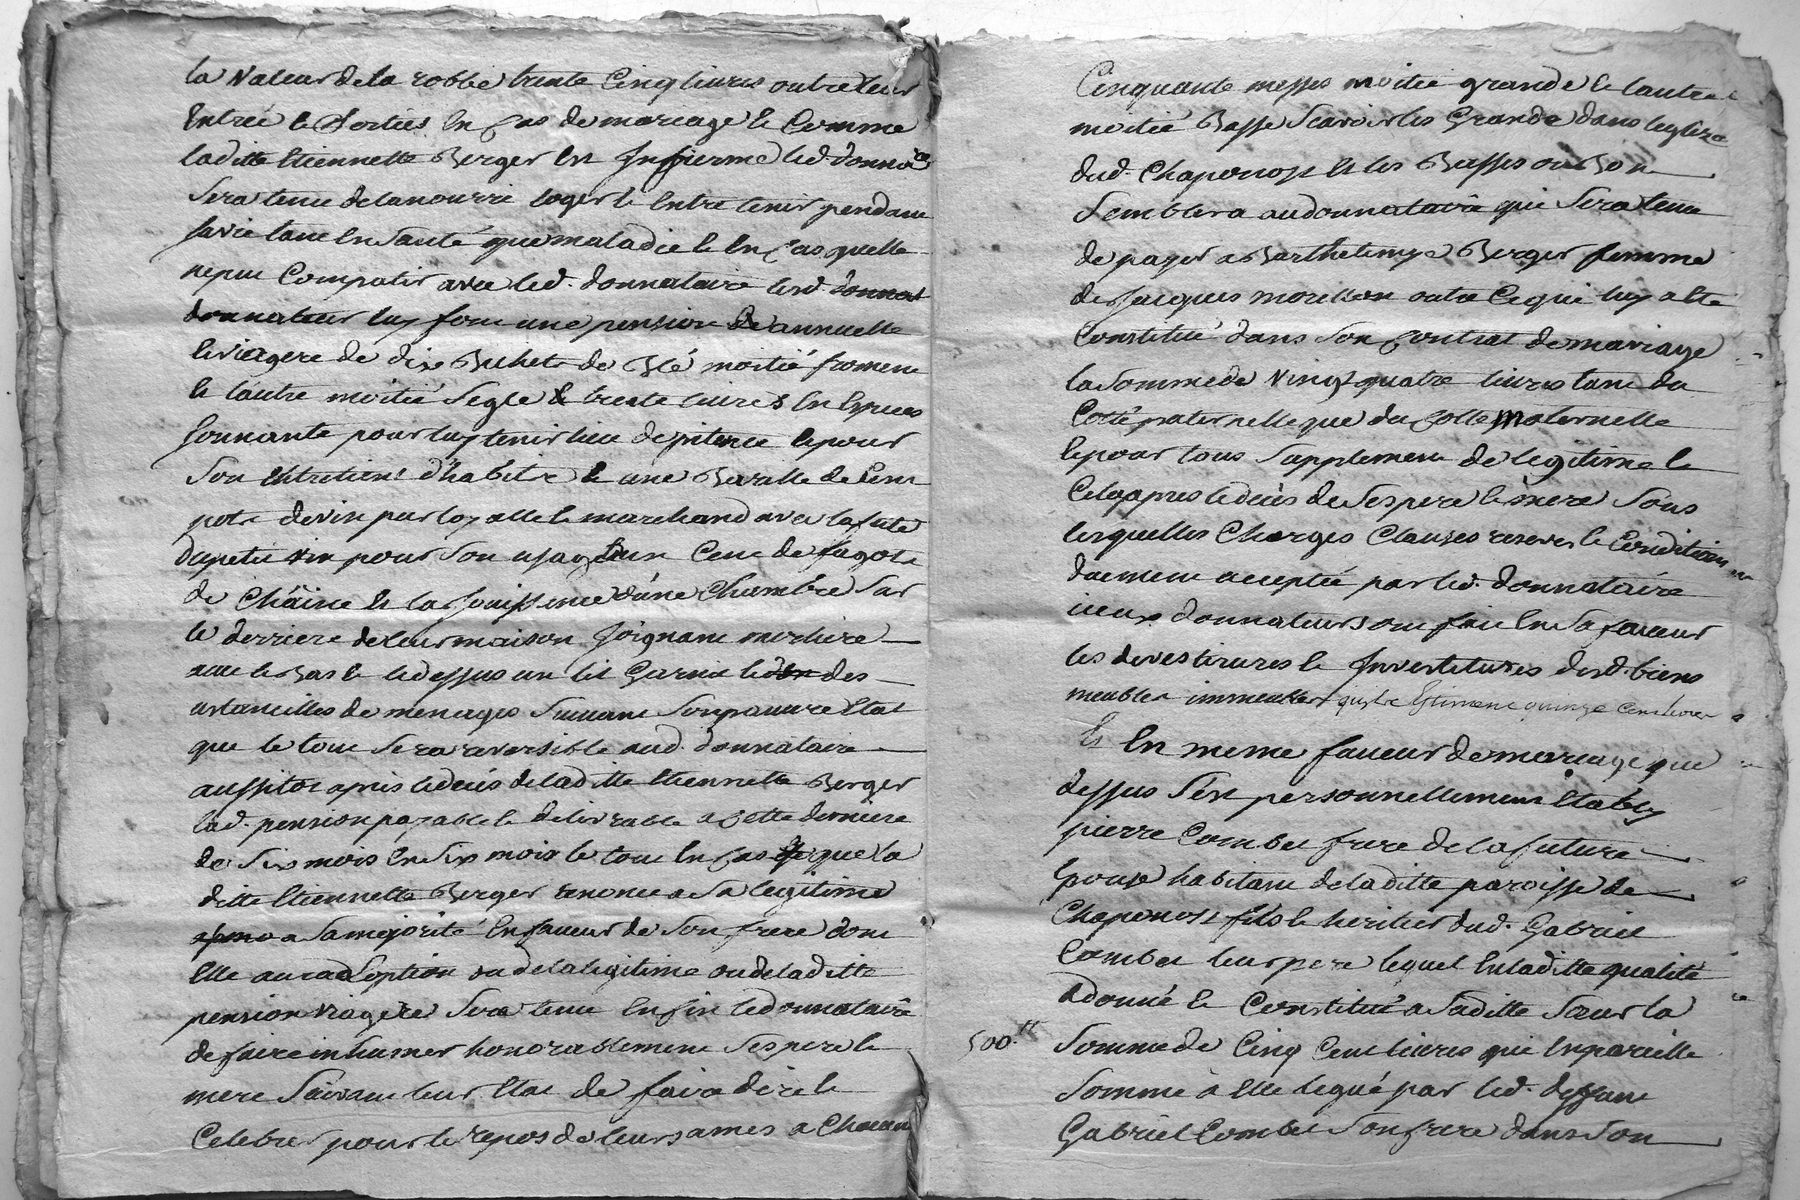 la Valeur de la robbe trente Cinq livres outre leur
Entrée et Sorties En Cas de mariage et Comme
laditte Etiennette Berger Est Infirme led. donnare
Sera tenu de la nourrir loger et Entretenir pendant
sa vie tant En Santé que maladie et En Cas quelle
ne put Compatir avec led. donnataire lesd. donnat
donnateur luy font une pension De annuelle
et viagere de dix Bichets de Blé moitié froment
et lautre moitié Segle & trente livres En Especes
Sonnante pour luy tenir lieu de pitence et pour
Son Entretient d'habits & une Baralle de Cent
pots de vin pur loyalle et marchand avec la fute
du petit vin pour Son usage un Cent de fagots
de Chaine et la Jouissence d'une Chambre Sur
le derriere de leur maison Joignant
avec le Bas et le dessus un lit Garnie et des
ustancilles de menages Suivant Son pauvre Etat
que le tout Sera raversible aud. donnataire
aussitot apres le deces de laditte Etiennette Berger
lad. pension payable et delivrable a Cette derniere
de Six mois En Six mois le tout En Cas que la
ditte Etiennette Berger renonce a Sa legitime
a Sa majorité En faveur de Son frere dont
Elle aura loption ou de la legitime ou de laditte
pension viagere Sera tenu Enfin le donnataire
de faire inhumer honorablement Ses pere et
mere Suivant leur Etat de faire dire et
Celebrer pour le repos de leurs ames a Chacun
Cinquante messes moitié grande et lautre
moitié Basse Scavoir les Grande dans leglize
dud. Chaponost Et les Basses ou Bon
Semblera au donnataire qui Sera tenu
de payer a Barthelemye Berger femme
de Jacques morillon outre Ce qui luy a Eté
Constitué dans Son Contrat de mariage
la Somme de Vingt quatre livres tant du
Cotté paternelle que du Cotté Maternelle
et pour tous Supplement de legitime et
Cela apres le deces de Ses pere et mere Sous
lesquelles Charges Clauses reserves et Conditions
duement acceptée par led. donnataire
iceux donnateurs ont fait En Sa faveur
les devestitures et Investitures desd. biens
meubles immeubles quils Estiment quinze Cent livres
Et En meme faveur de mariage que
dessus S'est personnellement Etably
pierre Combet frere de la future
Epouse habitant de laditte paroisse de
Chaponost fils et heritier dud. Gabriel
Combet leur pere lequel En laditte qualité
a donné et Constitué a Saditte Sœur la
500.tt Somme de Cinq Cent livres qui Enpareille
Somme a Elle legué par led. deffunt
Gabriel Combet Son frere dans Son